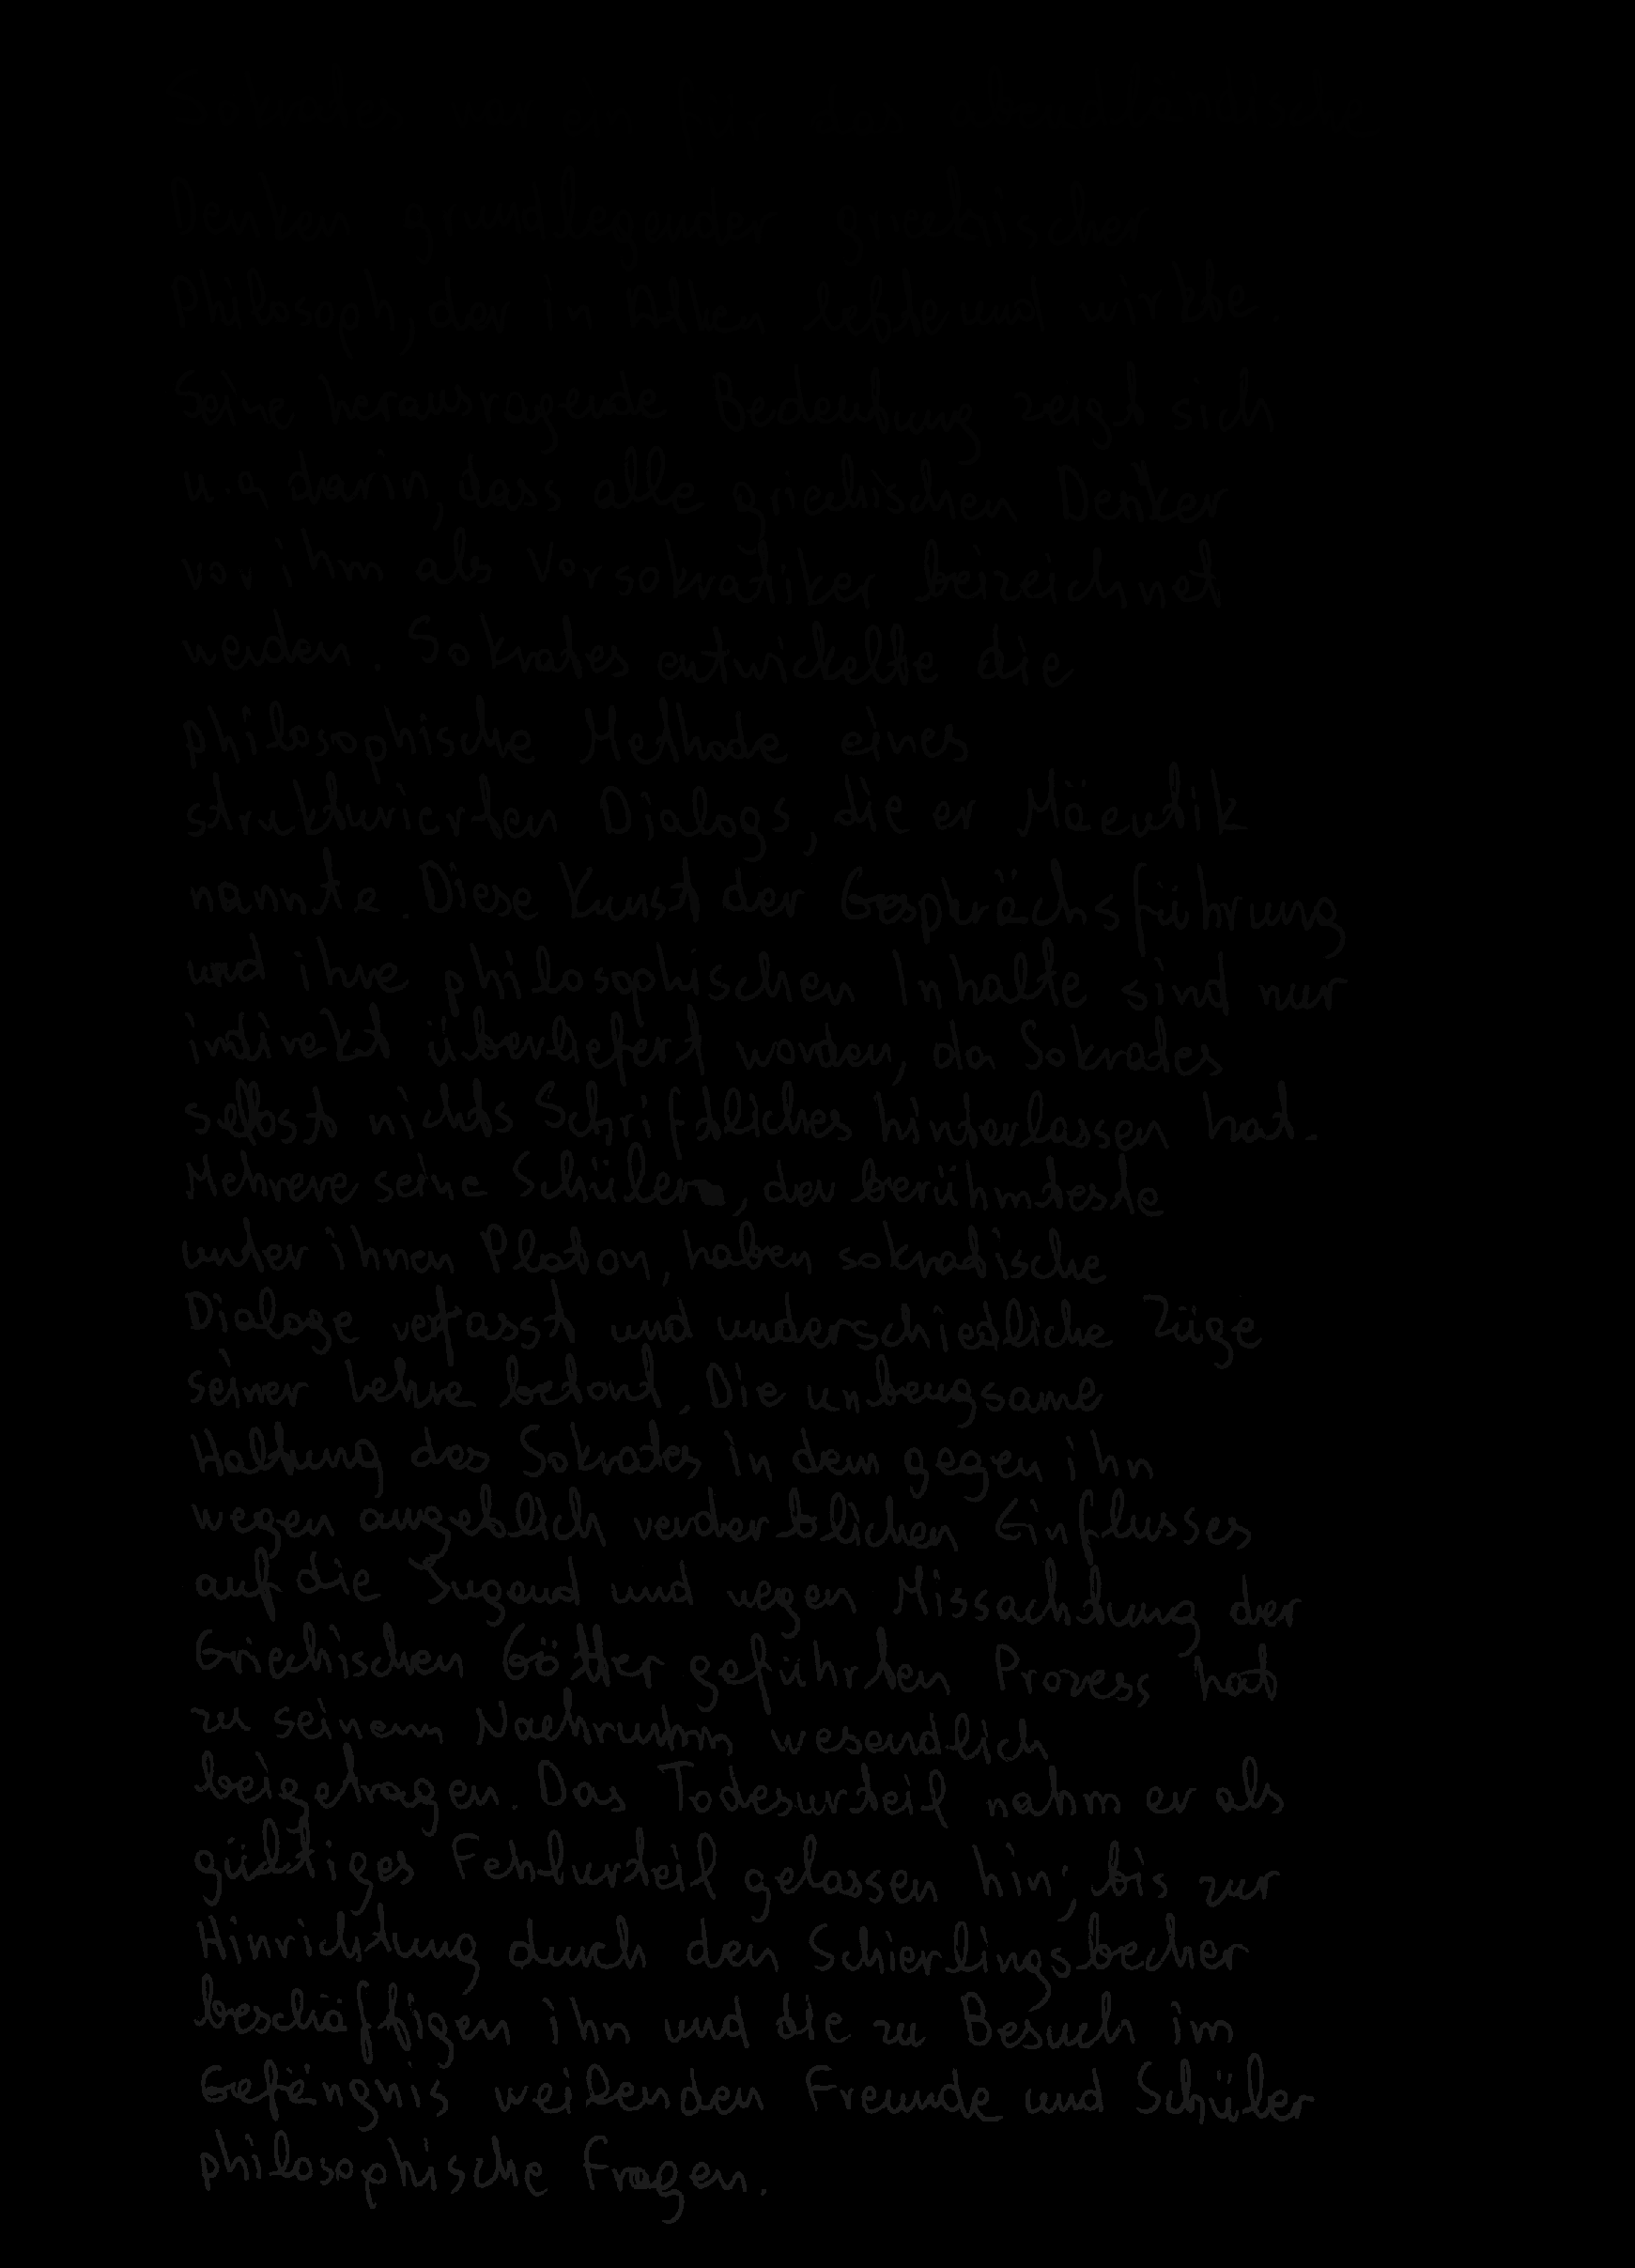 Sokrates war ein für das abendländische
Denken grundlegender griechischer
Philosoph, der in Athen lebte und wirkte.
Seine herausragende Bedeutung zeigt sich
u.a. darin, dass alle griechischen Denker
vor ihm als Vorsokratiker beizeichnet
werden. Sokrates entwickelte die
philosophische Methode eines
strukturierten Dialogs, die er Mäeutik
nannte. Diese Kunst der Gesprächsführung
und ihre philosophischen Inhalte sind nur
indirekt überliefert worden, da Sokrates
selbst nichts Schriftliches hinterlassen hat.
Mehrere seine Schüler, der berühmteste
unter ihnen Platon, haben sokratische
Dialoge verfasst und unterschiedliche Züge
seiner Lehre betont. Die unbeugsame
Haltung des Sokrates in dem gegen ihn
wegen angeblich verderblichen Einflusses
auf die Jugend und wegen Missachtung der
Griechischen Götter geführten Prozess hat
zu seinem Nachruhm wesentlich
beigetragen. Das Todesurteil nahm er als
gültiges Fehlurteil gelassen hin; bis zur
Hinrichtung durch den Schierlingsbecher
beschäftigen ihn und die zu Besuch im
Gefängnis weilenden Freunde und Schüler
philosophische Fragen.